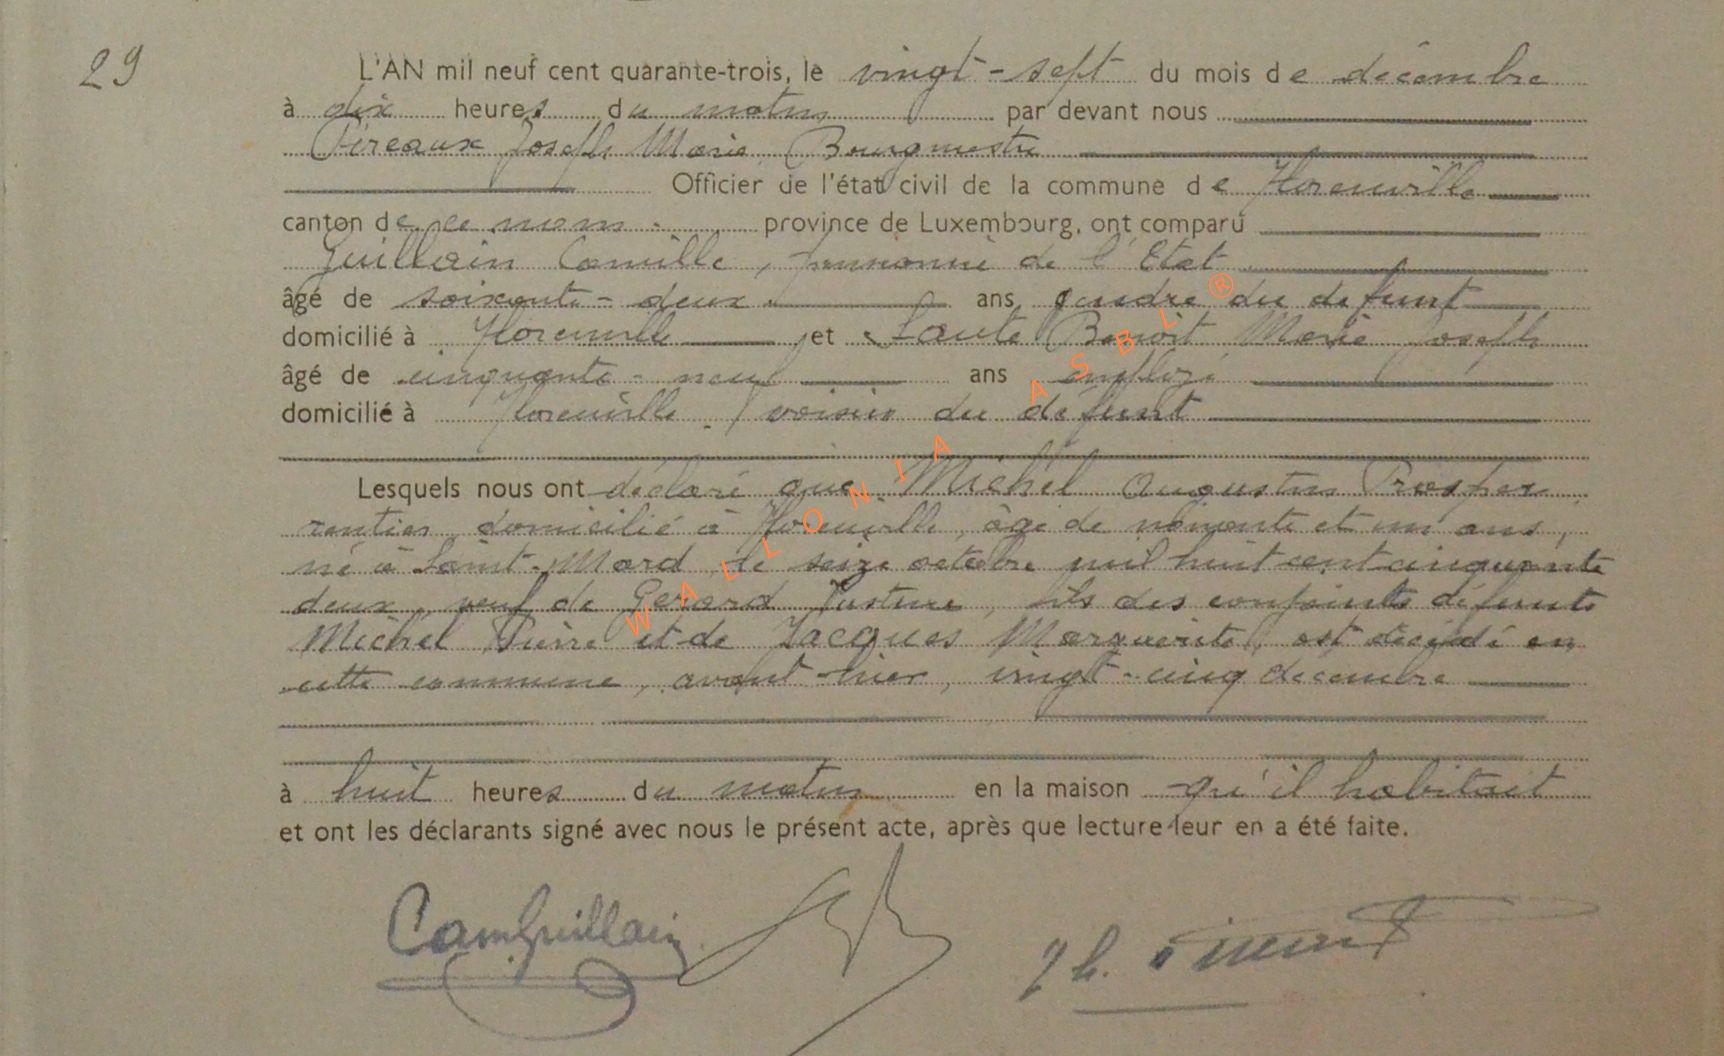 29
L'AN mil neuf cent quarante-trois, le vingt-sept du mois de décembre
à dix heures du matin par devant nous
Joseph Marie, Bourgmestre
Officier de l'état civil de la commune de Florenville
canton de ce nom. province de Luxembourg, ont comparu
Guillain Camille, pensionné de l'Etat
âgé de soixante-deux ans gendre du défunt
domicilié à Florenville et Benoit Marie Joseph
âgé de cinquante-neuf ans employé
domicilié à Florenville, voisin du défunt
Lesquels nous ont déclaré que Michel Augustin Prosper
rentier, domicilié à Florenville, âgé de nonante et un ans,
né à Saint-Mard, le seize octobre mil huit cent cinquante
deux, veuf de Gerard Justine, fils des conjoints défunts
Michel Pierre et de Jacques Marguerite, est décédé en
cette commune, avant-hier, vingt-cinq décembre
à huit heures du matin en la maison qu'il habitait
et ont les déclarants signé avec nous le présent acte, après que lecture leur en a été faite.
Cam Guillain
WALLONIA ASBL ®